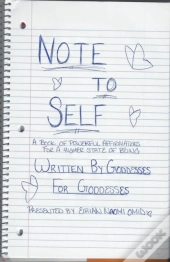 NOTE
TO
SELF
A BOOK OF POWERFUL AFFIRMATIONS
FOR A HIGHER STATE OF BEING
WRITTEN BY GODDESSES
FOR GODDESSES
PRESENTED BY NAOMI
WOOK